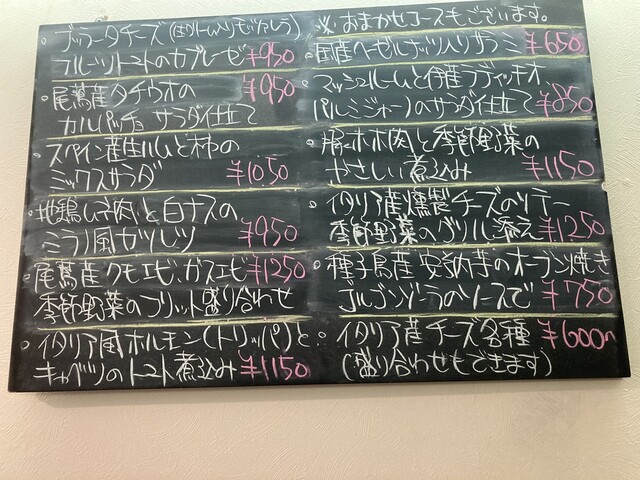 ブラータチーズ(生クリーム入りモッツァレラ)
フルーツトマトのカプレーゼ ¥950
尾鷲産タチウオの ¥950
カルパッチョ サラダ仕立て
スペイン産生ハムと柿の
ミックスサラダ ¥1050
地鶏ムネ肉と白ナスの
ミラノ風カツレツ ¥950
尾鷲産クモエビ、ガスエビ ¥1250
季節野菜のフリット盛り合わせ
イタリア風ホルモン(トリッパ)と
キャベツのトマト煮込み ¥1150
※おまかせコースもございます。
国産ヘーゼルナッツ入りサラミ ¥650
マッシュルームと伊産ラディッキオ
パルミジャーノのサラダ仕立て ¥850
豚ホホ肉と季節野菜の
やさしい煮込み ¥1150
イタリア産燻製チーズのソテー
季節野菜のグリル添え ¥1250
種子島産安納芋のオーブン焼き
ゴルゴンゾーラのソースで ¥750
イタリア産チーズ各種 ¥600〜
(盛り合わせもできます)